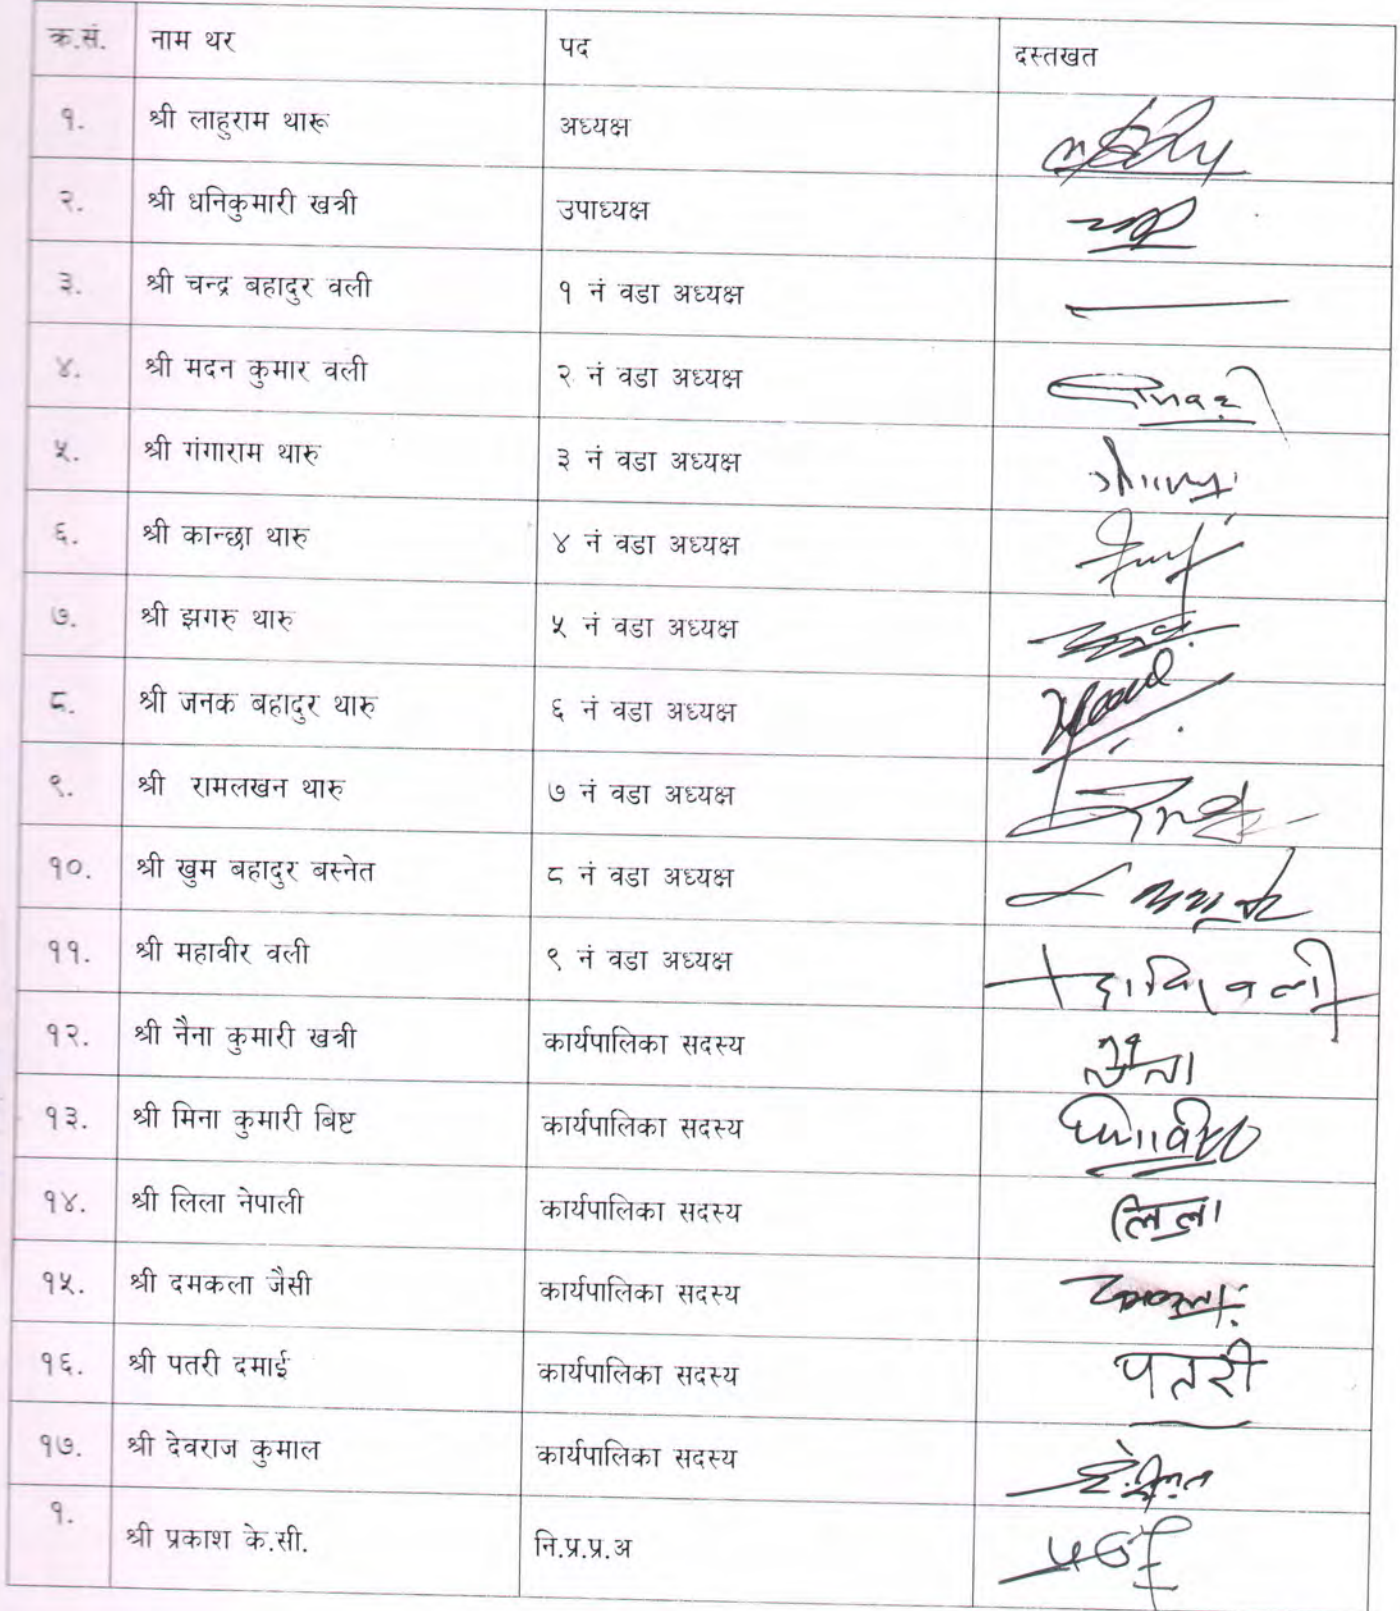 क्र.सं. नाम थर पद दस्तखत
१. श्री लाहुराम थारू अध्यक्ष
२. श्री धनिकुमारी खत्री उपाध्यक्ष
३. श्री चन्द्र बहादुर वली १ नं वडा अध्यक्ष
४. श्री मदन कुमार वली २ नं वडा अध्यक्ष
५. श्री गंगाराम थारु ३ नं वडा अध्यक्ष
६. श्री कान्छा थारु ४ नं वडा अध्यक्ष
७. श्री झगरु थारु ५ नं वडा अध्यक्ष
८. श्री जनक बहादुर थारु ६ नं वडा अध्यक्ष
९. श्री रामलखन थारु ७ नं वडा अध्यक्ष
१०. श्री खुम बहादुर बस्नेत ८ नं वडा अध्यक्ष
११. श्री महावीर वली ९ नं वडा अध्यक्ष
१२. श्री नैना कुमारी खत्री कार्यपालिका सदस्य
१३. श्री मिना कुमारी बिष्ट कार्यपालिका सदस्य
१४. श्री लिला नेपाली कार्यपालिका सदस्य लिला
१५. श्री दमकला जैसी कार्यपालिका सदस्य
१६. श्री पतरी दमाई कार्यपालिका सदस्य पतरी
१७. श्री देवराज कुमाल कार्यपालिका सदस्य
१. श्री प्रकाश के.सी. नि.प्र.प्र.अ